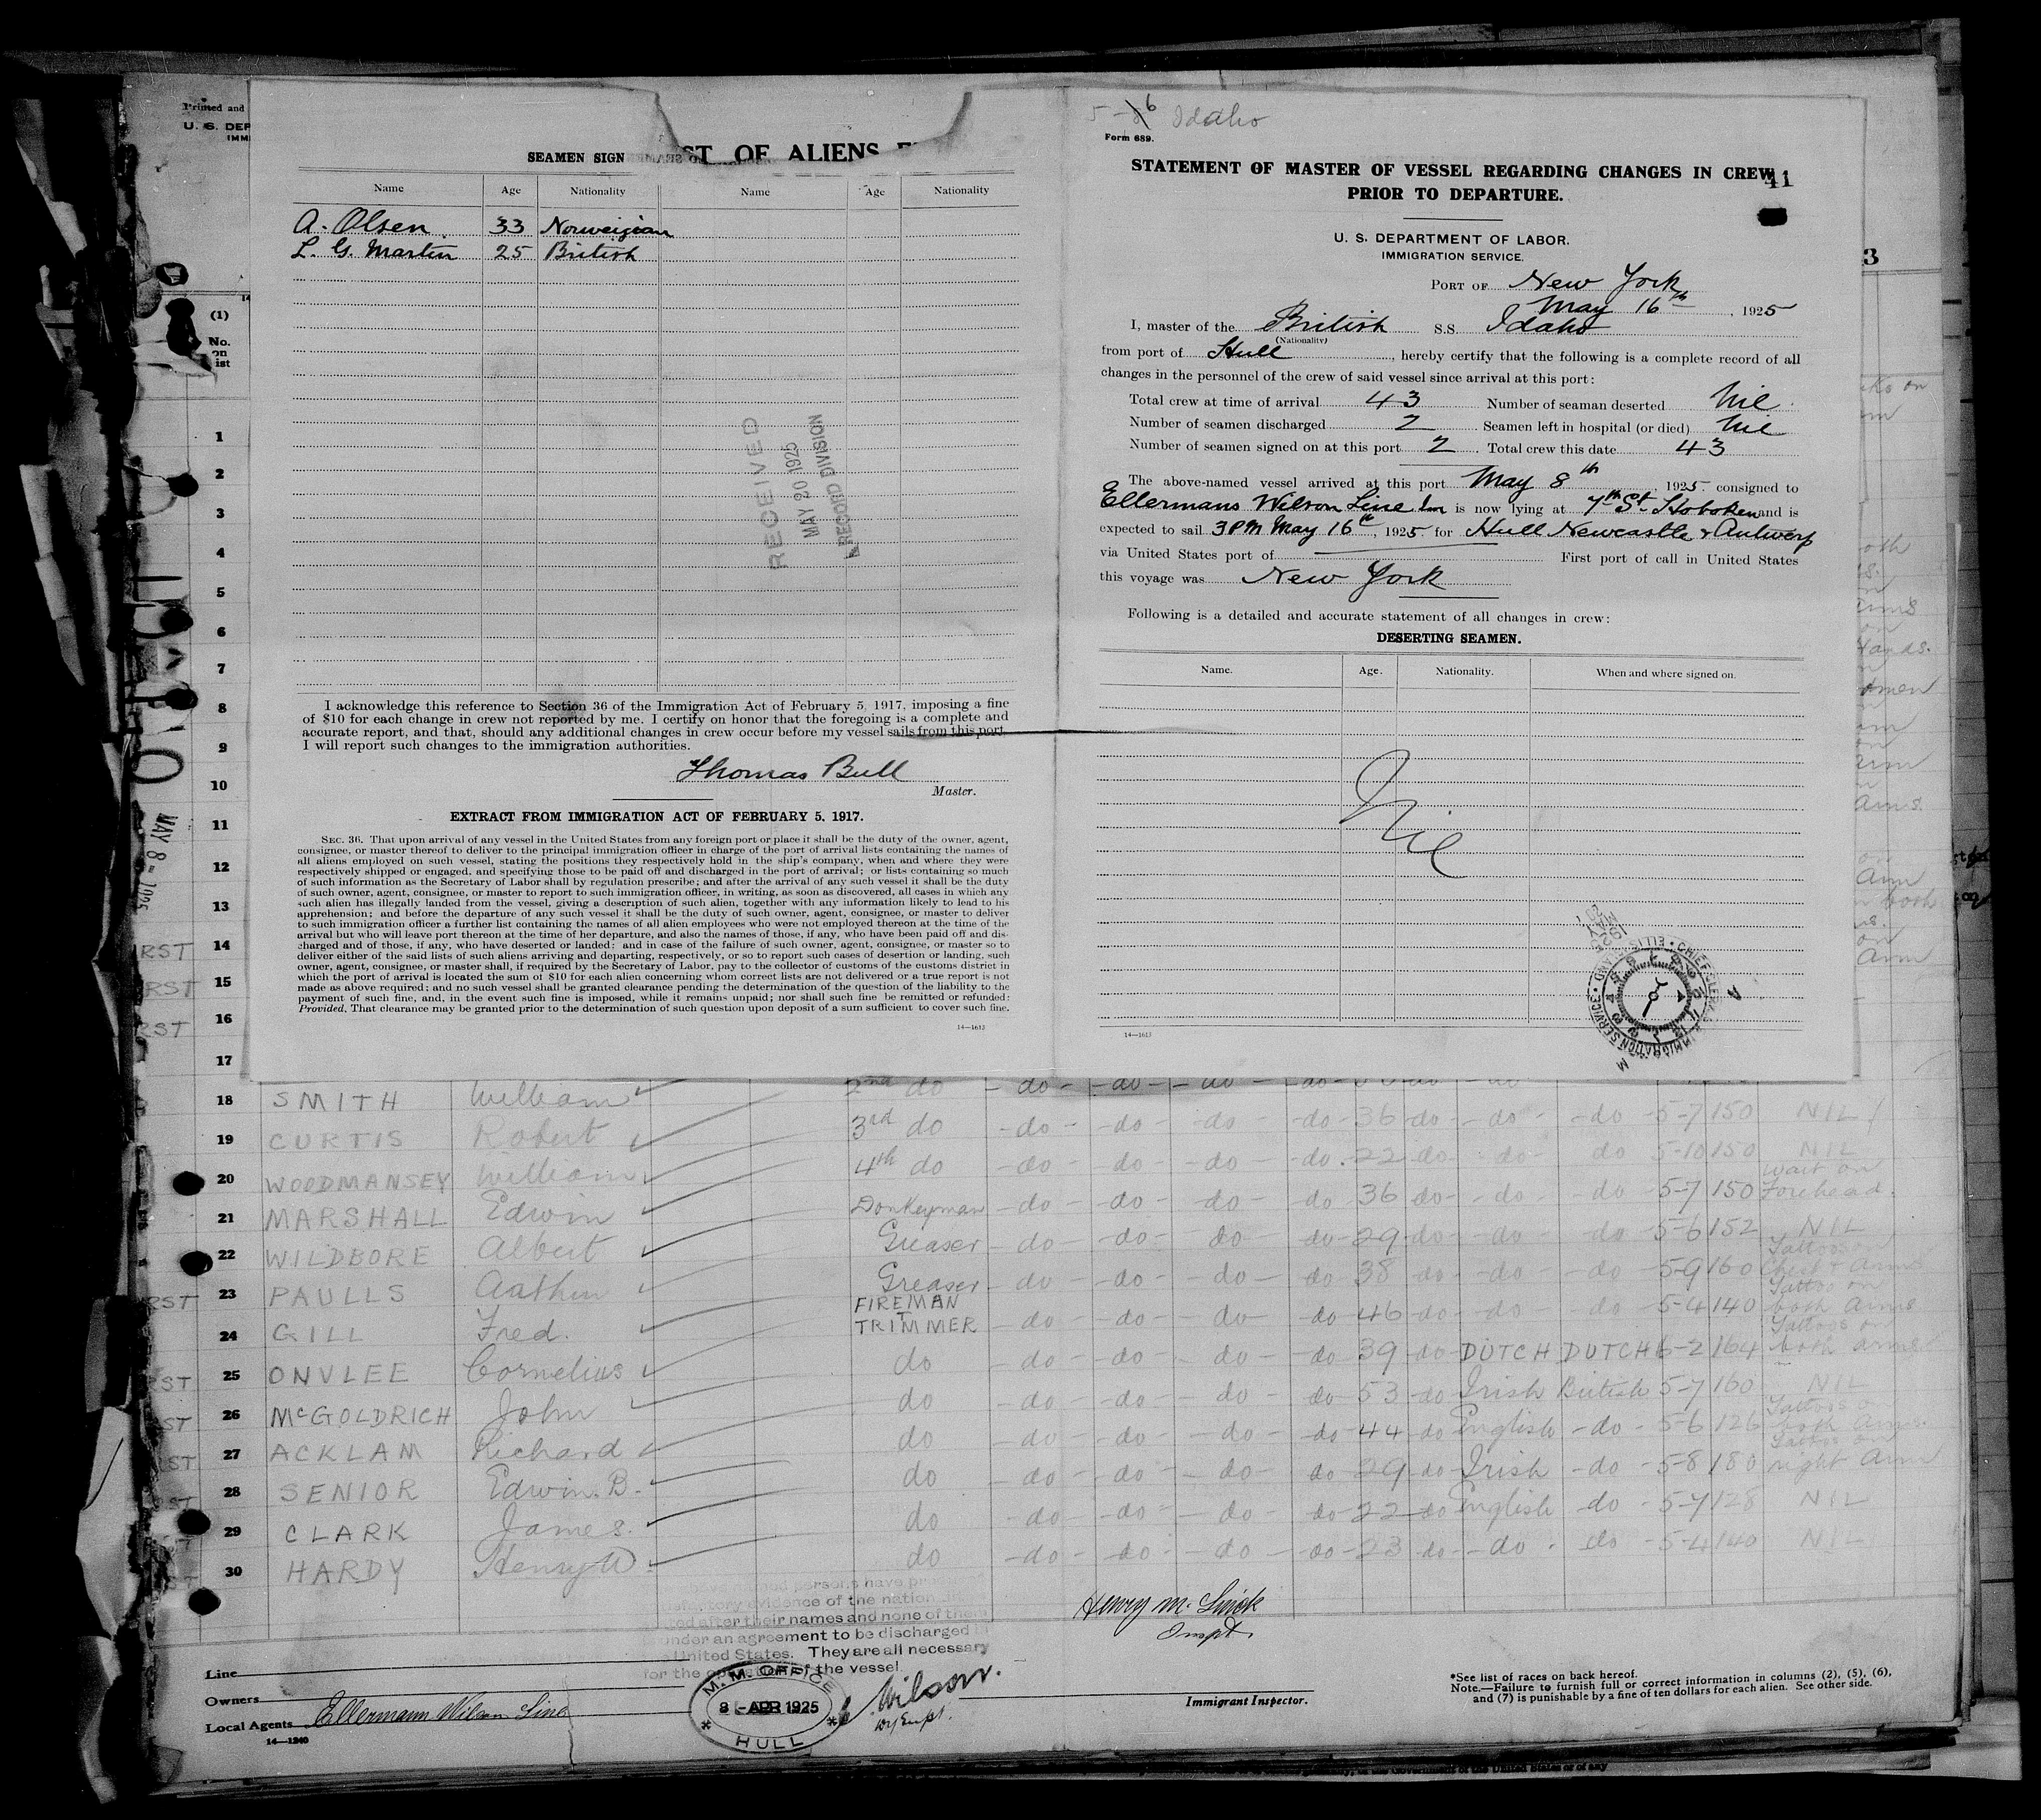 Printed and
U. S. DEP
IMM
SEAMEN SIGN
ST OF ALIENS
Name Age Nationality Name Age Nationality
A. Olsen. 33 Norweigian
L. G. Martin 25 British
RECEIVED
MAY 20 1925
RECORD DIVISION
I acknowledge this reference to Section 36 of the Immigration Act of February 5, 1917, imposing a fine
of $10 for each change in crew not reported by me. I certify on honor that the foregoing is a complete and
accurate report, and that, should any additional changes in crew occur before my vessel sails from this port,
I will report such changes to the immigration authorities.
Thomas Bull
Master.
EXTRACT FROM IMMIGRATION ACT OF FEBRUARY 5, 1917.
SEC. 36. That upon arrival of any vessel in the United States from any foreign port or place it shall be the duty of the owner, agent,
consignee, or master thereof to deliver to the principal immigration officer in charge of the port of arrival lists containing the names of
all aliens employed on such vessel, stating the positions they respectively hold in the ship's company, when and where they were
respectively shipped or engaged, and specifying those to be paid off and discharged in the port of arrival; or lists containing so much
of such information as the Secretary of Labor shall by regulation prescribe; and after the arrival of any such vessel it shall be the duty
of such owner, agent, consignee, or master to report to such immigration officer, in writing, as soon as discovered, all cases in which any
such alien has illegally landed from the vessel, giving a description of such alien, together with any information likely to lead to his
apprehension; and before the departure of any such vessel it shall be the duty of such owner, agent, consignee, or master to deliver
to such immigration officer a further list containing the names of all alien employees who were not employed thereon at the time of the
arrival but who will leave port thereon at the time of her departure, and also the names of those, if any, who have been paid off and dis-
charged and of those, if any, who have deserted or landed; and in case of the failure of such owner, agent, consignee, or master so to
deliver either of the said lists of such aliens arriving and departing, respectively, or so to report such cases of desertion or landing, such
owner, agent, consignee, or master shall, if required by the Secretary of Labor, pay to the collector of customs of the customs district in
which the port of arrival is located the sum of $10 for each alien concerning whom correct lists are not delivered or a true report is not
made as above required; and no such vessel shall be granted clearance pending the determination of the question of the liability to the
payment of such fine, and, in the event such fine is imposed, while it remains unpaid; nor shall such fine be remitted or refunded:
Provided, That clearance may be granted prior to the determination of such question upon deposit of a sum sufficient to cover such fine.
14—1613
5- 6 Idaho
Form 689.
STATEMENT OF MASTER OF VESSEL REGARDING CHANGES IN CREW
PRIOR TO DEPARTURE.
41
U. S. DEPARTMENT OF LABOR.
IMMIGRATION SERVICE.
PORT OF New York
May 16th, 1925
I, master of the British S.S. Idaho
(Nationality)
from port of Hull, hereby certify that the following is a complete record of all
changes in the personnel of the crew of said vessel since arrival at this port:
Total crew at time of arrival 43 Number of seaman deserted Nil
Number of seamen discharged 2 Seamen left in hospital (or died) Nil
Number of seamen signed on at this port 2 Total crew this date 43
The above-named vessel arrived at this port May 8th, 1925. consigned to
Ellermans Wilson Line Inc is now lying at 7th St. Hoboken and is
expected to sail 3PM May 16th, 1925. for Hull Newcastle & Antwerp
via United States port of First port of call in United States
this voyage was New York
Following is a detailed and accurate statement of all changes in crew:
DESERTING SEAMEN.
Name. Age. Nationality. When and where signed on.
Nil
IMMIGRATION SERVICE • ELLIS ISLAND • CHIEF CLERK
14—1613
3
(1)
No.
on
ist
1
2
3
4
5
6
7
8
9
10
11
12
13
14
15
16
17
IDAHO
MAY 8 - 1925
18 SMITH William 2nd do -do- -do- -do- -do-
19 CURTIS Robert 3rd do -do- -do- -do- -do- 36 -do- -do- -do 5-7 150 NIL
20 WOODMANSEY William 4th do -do- -do- -do- -do. 22 do- -do- do 5-10 150 NIL
21 MARSHALL Edwin Donkeyman -do- -do- do- -do 36 do- -do- do 5-7 150 Wart on Forehead.
22 WILDBORE Albert Greaser -do- -do- do- do- 29 -do- -do- -do 5-6 152 NIL
23 PAULLS Arthur Greaser -do- -do- -do- -do 38 -do- -do- -do 5-9 160 Tattoos on Chest & Arms
24 GILL Fred. FIREMAN TRIMMER -do- -do- -do- -do 46 -do- -do- do 5-4 140 Tattoo on both Arms
25 ONVLEE Cornelius do -do- -do- -do- -do 39 -do- DUTCH DUTCH 6-2 164 Tattoos on both arms
26 McGOLDRICH John do -do- -do- -do- do- 53 -do Irish British 5-7 160 NIL
27 ACKLAM Richard do -do- -do- -do- -do- 44 do English -do- 5-6 126 Tattoos on both Arms.
28 SENIOR Edwin. B. do -do- -do- -do- do 29 -do Irish -do- 5-8 180 Tattoo on right Arm
29 CLARK James. do -do- -do- -do- -do- 22 -do English do- 5-7 128 NIL
30 HARDY Henry W. do -do- -do- -do- -do- 23 do- -do- do 5-4 140 NIL
named persons have
evidence of the nation
after their names and none of them
under an agreement to be discharged in
United States. They are all necessary
for the operation of the vessel.
Henry M. Linck
Inspt.
Line
Owners
Local Agents Ellermann Wilson Line
14—1240
M. M. OFFICE
8 - APR 1925
HULL
Wilson.
Immigrant Inspector.
*See list of races on back hereof.
Note.—Failure to furnish full or correct information in columns (2), (5), (6),
and (7) is punishable by a fine of ten dollars for each alien. See other side.